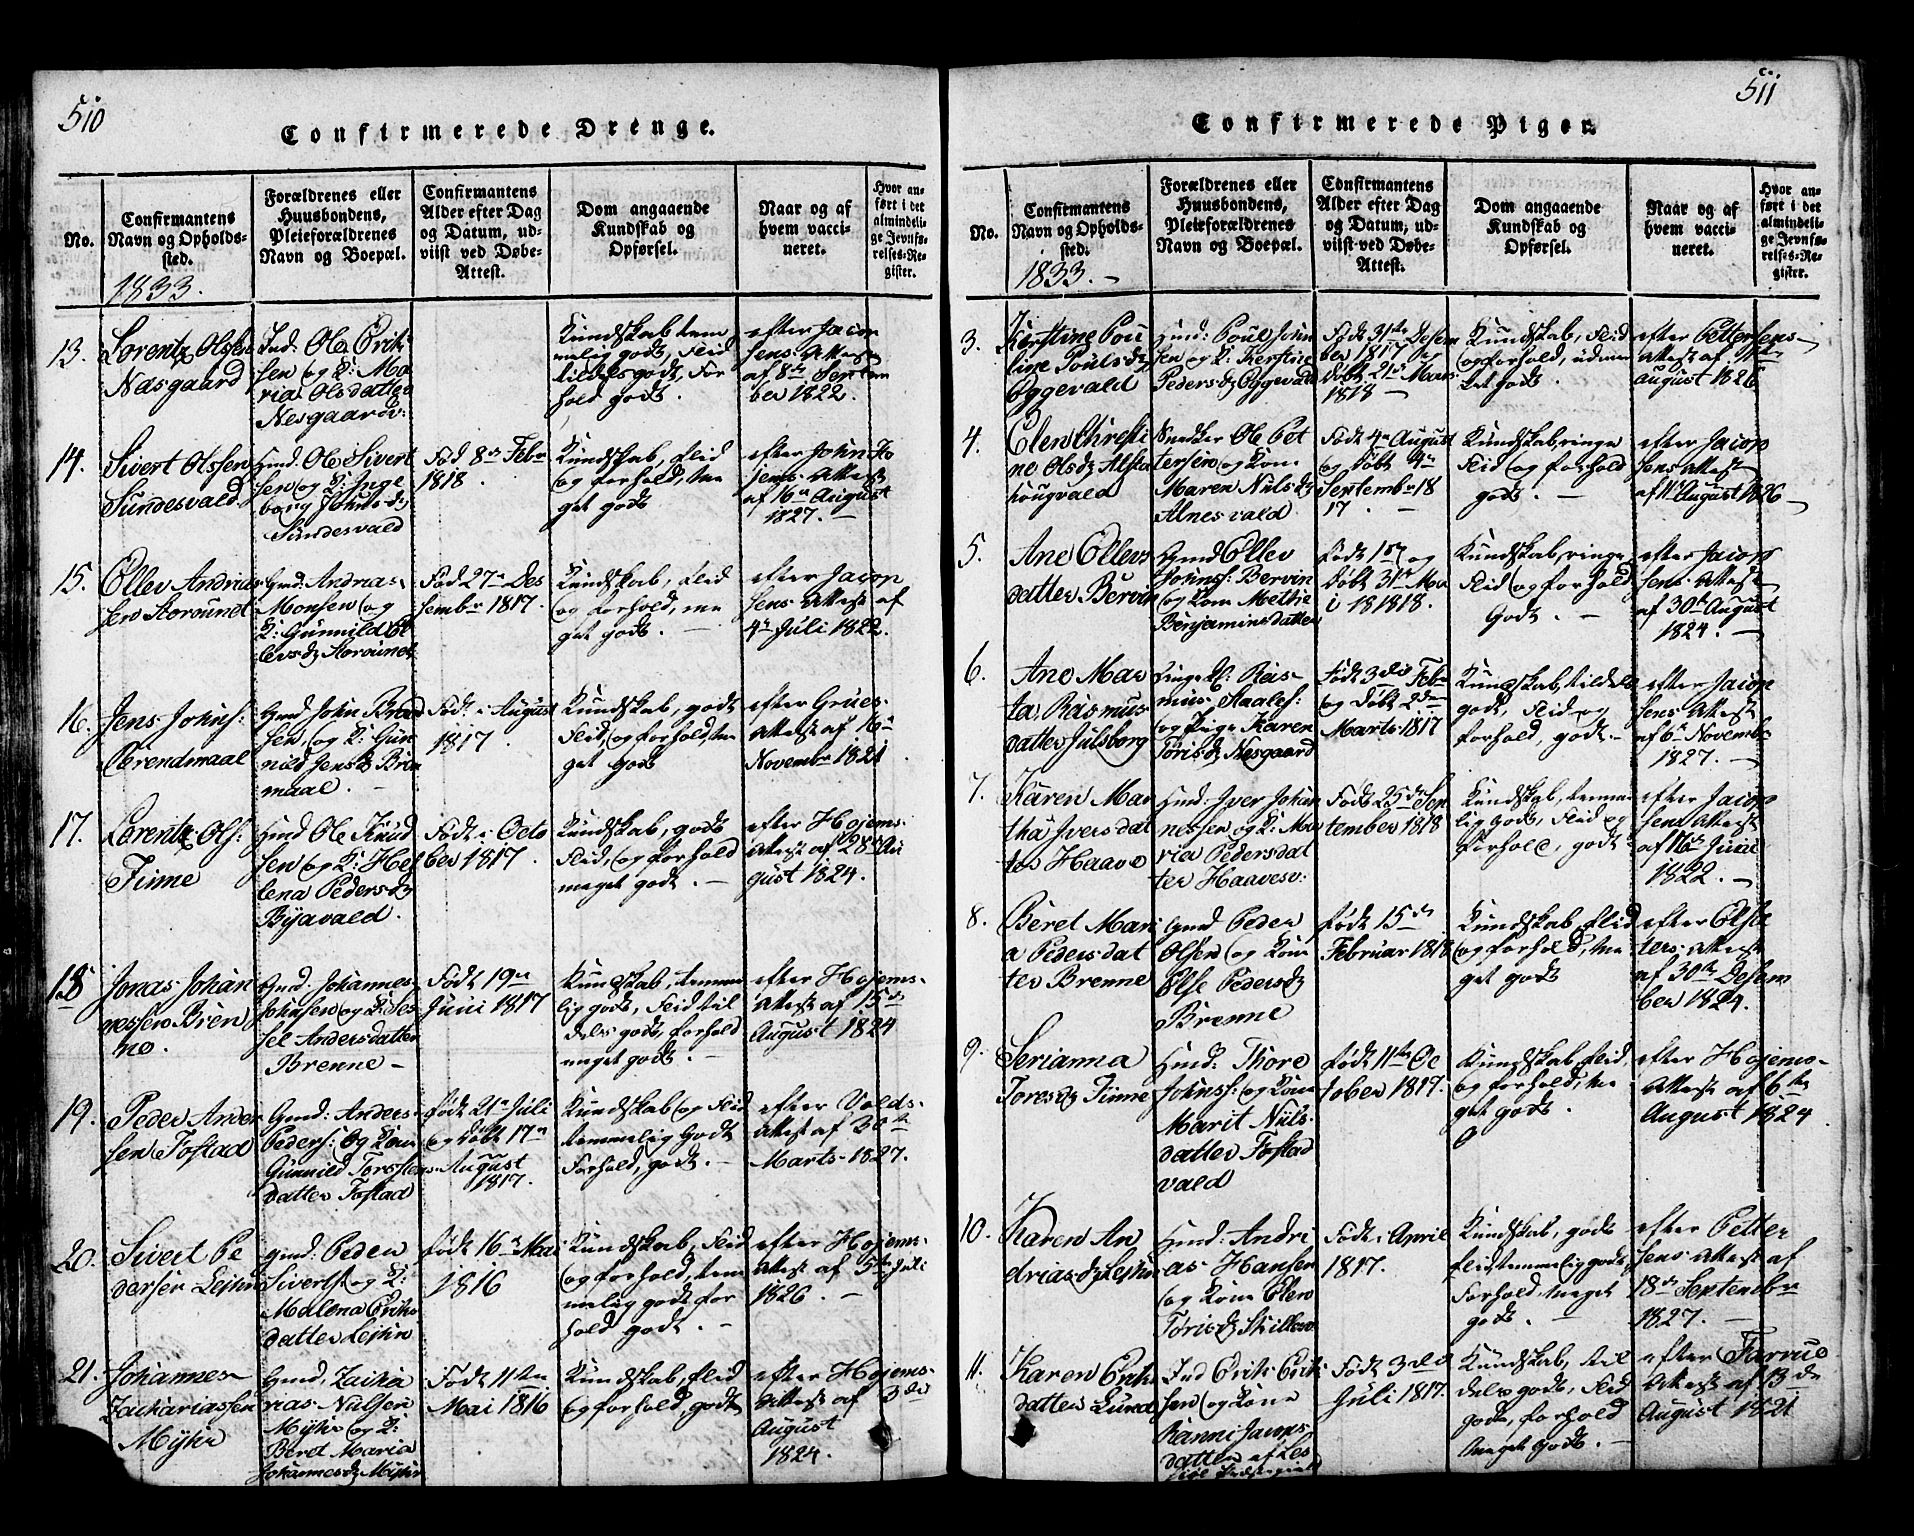 510
Confirmerede Drenge.
No.
Confirmantens
Navn og Opholds-
sted.
1833.
Forældrenes eller
Huusbondens,
Pleieforældrenes
Navn og Boepæl.
Confirmantens
Alder efter Dag
og Datum, ud-
viist ved Døbe-
Attest.
Dom angaaende
Kundskab og
Opførsel.
Naar og af
hvem vacci-
neret.
Hvor an-
ført i det
almindeli-
ge Jevnfø-
relses-Re-
gister.
13.
Lorentz Olssen
Næsgaard
Ind. Ole Erik-
sen og K: Ma
ria Olsdatter
Nesgaardv:
Kundskab tem
melig godt, Flid
tildels godt, For
hold godt.
efter Jacop
sens Attest
af 8de Septem
ber 1822.
14.
Sivert Olssen
Sundesvald
Hmd. Ole Sivert
sen og K: Inge
borg Johns d:
Sundesvald
Fød 8de Febr
1818.
Kundskab, Flid
og forhold, me
get godt
efter John Ho
jems Attest
af 16de August
1827.
15.
Ollev Andrias
sen
Gmd. Andras
Monsen og
K: Gunnild Ol
levsd
Fød 27de Des
sembr 1817.
Kundskab, Flid
og forhold, me
get godt.
efter Jacop
sens Attest af
4de Juli 1822.
16.
Jens Johns:
Ørendmaal
Gmd John Brend
sen, og K: Gun
nild Jensd
maal.
Født i August
1817.
Kundskab, godt
Flid, og forhold, me
get godt
efter Grües
Attest af 16de
Novembr 1821
17.
Lorentz Ols:
Finne
Hmd Ole Knud
sen og K: Hel
lena Pedersd
Byavald.
Født i Octo
ber 1817.
Kundskab, godt
Flid, og forhold
meget godt.
efter Hojems
Attest af 28de Au
gust 1824.
18
Jonas Johan
nessen Bren
ne.
Gmd. Johannes
Johnsen og K: Ses
sel Andersdatter
Brenne
Født 19de
Juni 1817
Kundskab, temme
lig godt, Flid til
dels godt, forhold
meget godt.
efter Hojems
Attest af 15de
August 1824
19.
Peder Ander
sen Fostad
Gmd: Anders
Peders: Og Kone
Gunnild Torsten
datter Fostad
Født 21de Juli
og døbt 17de
August
1817.
Kundskab og Flid
temmelig Godt
Forhold, godt.
efter Volds
Attest af 30te
Marts 1827.
20.
Sivert Pe
dersen
gmd: Peder
Siverts og K:
Malena Eriks
datter
Født 16de Mai
1816
Kundskab, Flid
og forhold, tem
melig godt for
hold godt.
efter Hojems
Attest af 5te Juli
1826.
21.
Johannes
Zachariassen
Myhr
Gmd, Zacha
rias Nilsen
Myhr og K:
Beret Maria
Johannesd Myhr
Født 11te
Mai 1816
Kundskab, Flid
og forhold, godt
efter Hojems
Attest af 3de
August
1824.
511
Confirmerede Piger.
No.
Confirmantens
Navn og Opholds-
sted.
1833.
Forældrenes eller
Huusbondens,
Pleieforældrenes
Navn og Boepæl.
Confirmantens
Alder efter Dag
og Datum, ud-
viist ved Døbe-
Attest.
Dom angaaende
Kundskab og
Opførsel.
Naar og af
hvem vacci-
neret.
Hvor an-
ført i det
almindeli-
ge Jevnfø-
relses-Re-
gister.
3.
Kirstine Pou
line Poulsd
Eggevald
Hmd: Poul John
sen og K: Kerstine
Pedersd Eggevald
Født 31te Desem
ber 1817 og
døbt 21de Marts
1818
Kundskab, Flid
og forhold, udmer
ket godt.
efter Pettersens
Attest af 9de
August 1826
4.
Elen Christi
ne Olsd
Snedker Ole Pet
tersen og Kone
Maren Nilsd
Alnesvald
Født 4de August
og døbt 4de
Septembr 18
17.
Kundskab, ringe
Flid og forhold
godt.
efter Jacop
sens Attest
af 11te August 1826
5.
Ane Ollevs
datter Bervin
Gmd Ollev
Johns: Bervin
og Kone Methe
Benjaminsdatter
Født 1ste og
døbt 31te Ma
i 1818.
Kundskab, ringe
Flid og forhold
Godt.
efter Jacop
sens Attest
af 30te August
1824.
6.
Ane Mar
ta Rasmus
datter Julsborg
Ras
mus Staales:
og Pige Karen
Torisd Nesgaard
Født 3die Febr
og døbt 2den
Marts 1817
Kundskab, tildels
godt, Flid og
forhold, godt.
efter Jacop
sens Attest
af 6te Novembr
1827.
7.
Karen Mar
tha Ivers dat
ter Haave
Hmd: Iver Johan
nessen og K: Ma
ria Pedersdat
ter Haavesv:
Født 25de Sep
tember 1818
Kundskab, temme
lig godt, Flid og
forhold, godt
efter Jacop
sens Attest
af 16de Juni
1822.
8.
Beret Mari
a Pedersdat
ter Brenne
Gmd Peder
Olsen og Kone
Else Pedersd
Brenne
Født 15de
Februar 1818
Kundskab, Flid
og forhold, me
get godt
efter
Attest
af 30te Desem
ber 1824.
9.
Serianna
Toresd Finne
Hmd: Thore
Johns: og Kone
Marit Nils
datter Fostad
vald
Født 11te Oc
tober 1817.
Kundskab, Flid,
og forhold, me
get godt.
efter Hojems
Attest af 6te
August 1824
10.
Karen An
driasd
Hmd: Andri
as Hansen
og Kone Elen
Torisd
Født i April
1817.
Kundskab, godt
Flid temmelig godt,
Forhold, meget
godt.
efter Petter
sens Attest af
18de Septembr
1827.
11.
Karen Eriks
datter Lund
Ind Erik Erik
sen og Kone
Ranni Jacops
datter
Født 3die
Juli 1817.
Kundskab, til
dels godt, Flid
godt, forhold
meget godt.
efter
Attest af 13de
August 1821